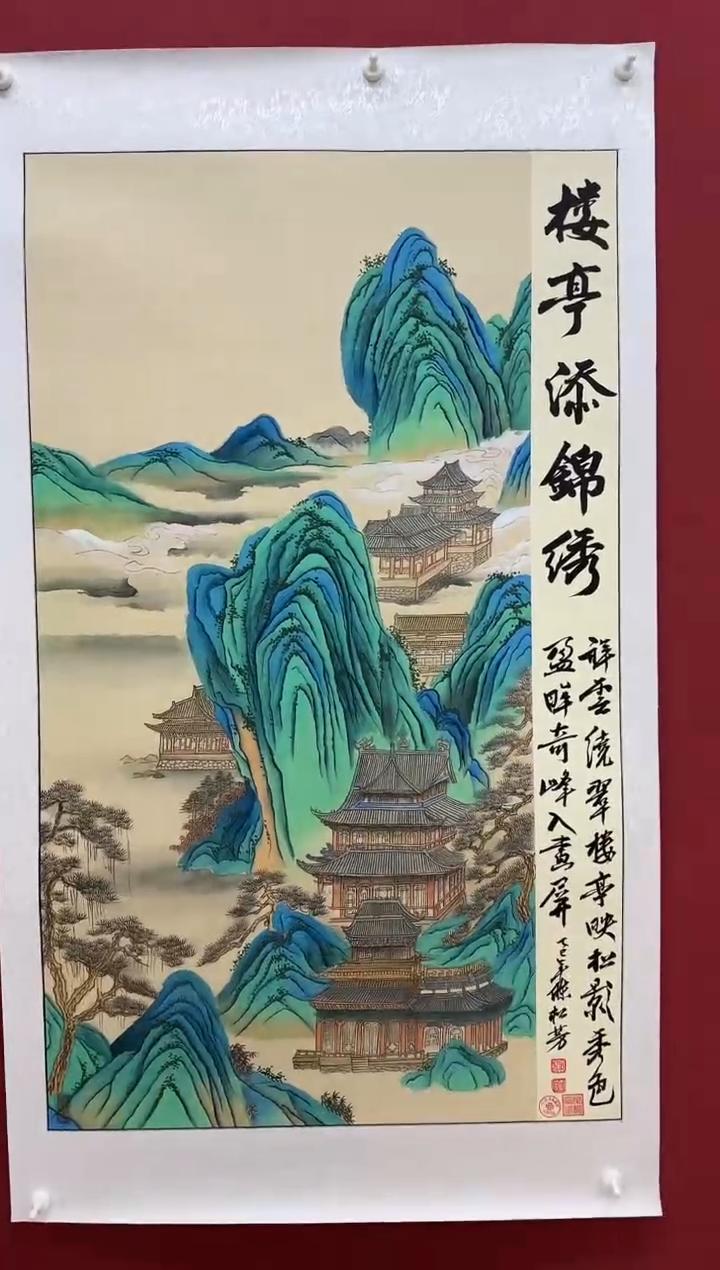 楼亭添錦绣
祥雲绕翠楼亭映松影秀色
盈眸奇峰入畫屏
乙巳年 松芳